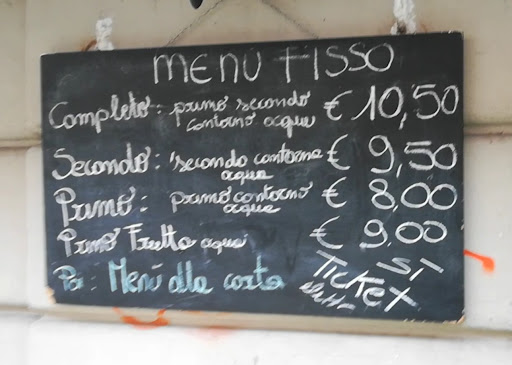 MENÙ FISSO
Completo: primo secondo € 10,50
contorno acqua
Secondo: secondo contorno € 9,50
acqua
Primo: primo contorno € 8,00
acqua
Primo Frutta acqua € 9,00
Poi: Menù alla carta
TICKET SI